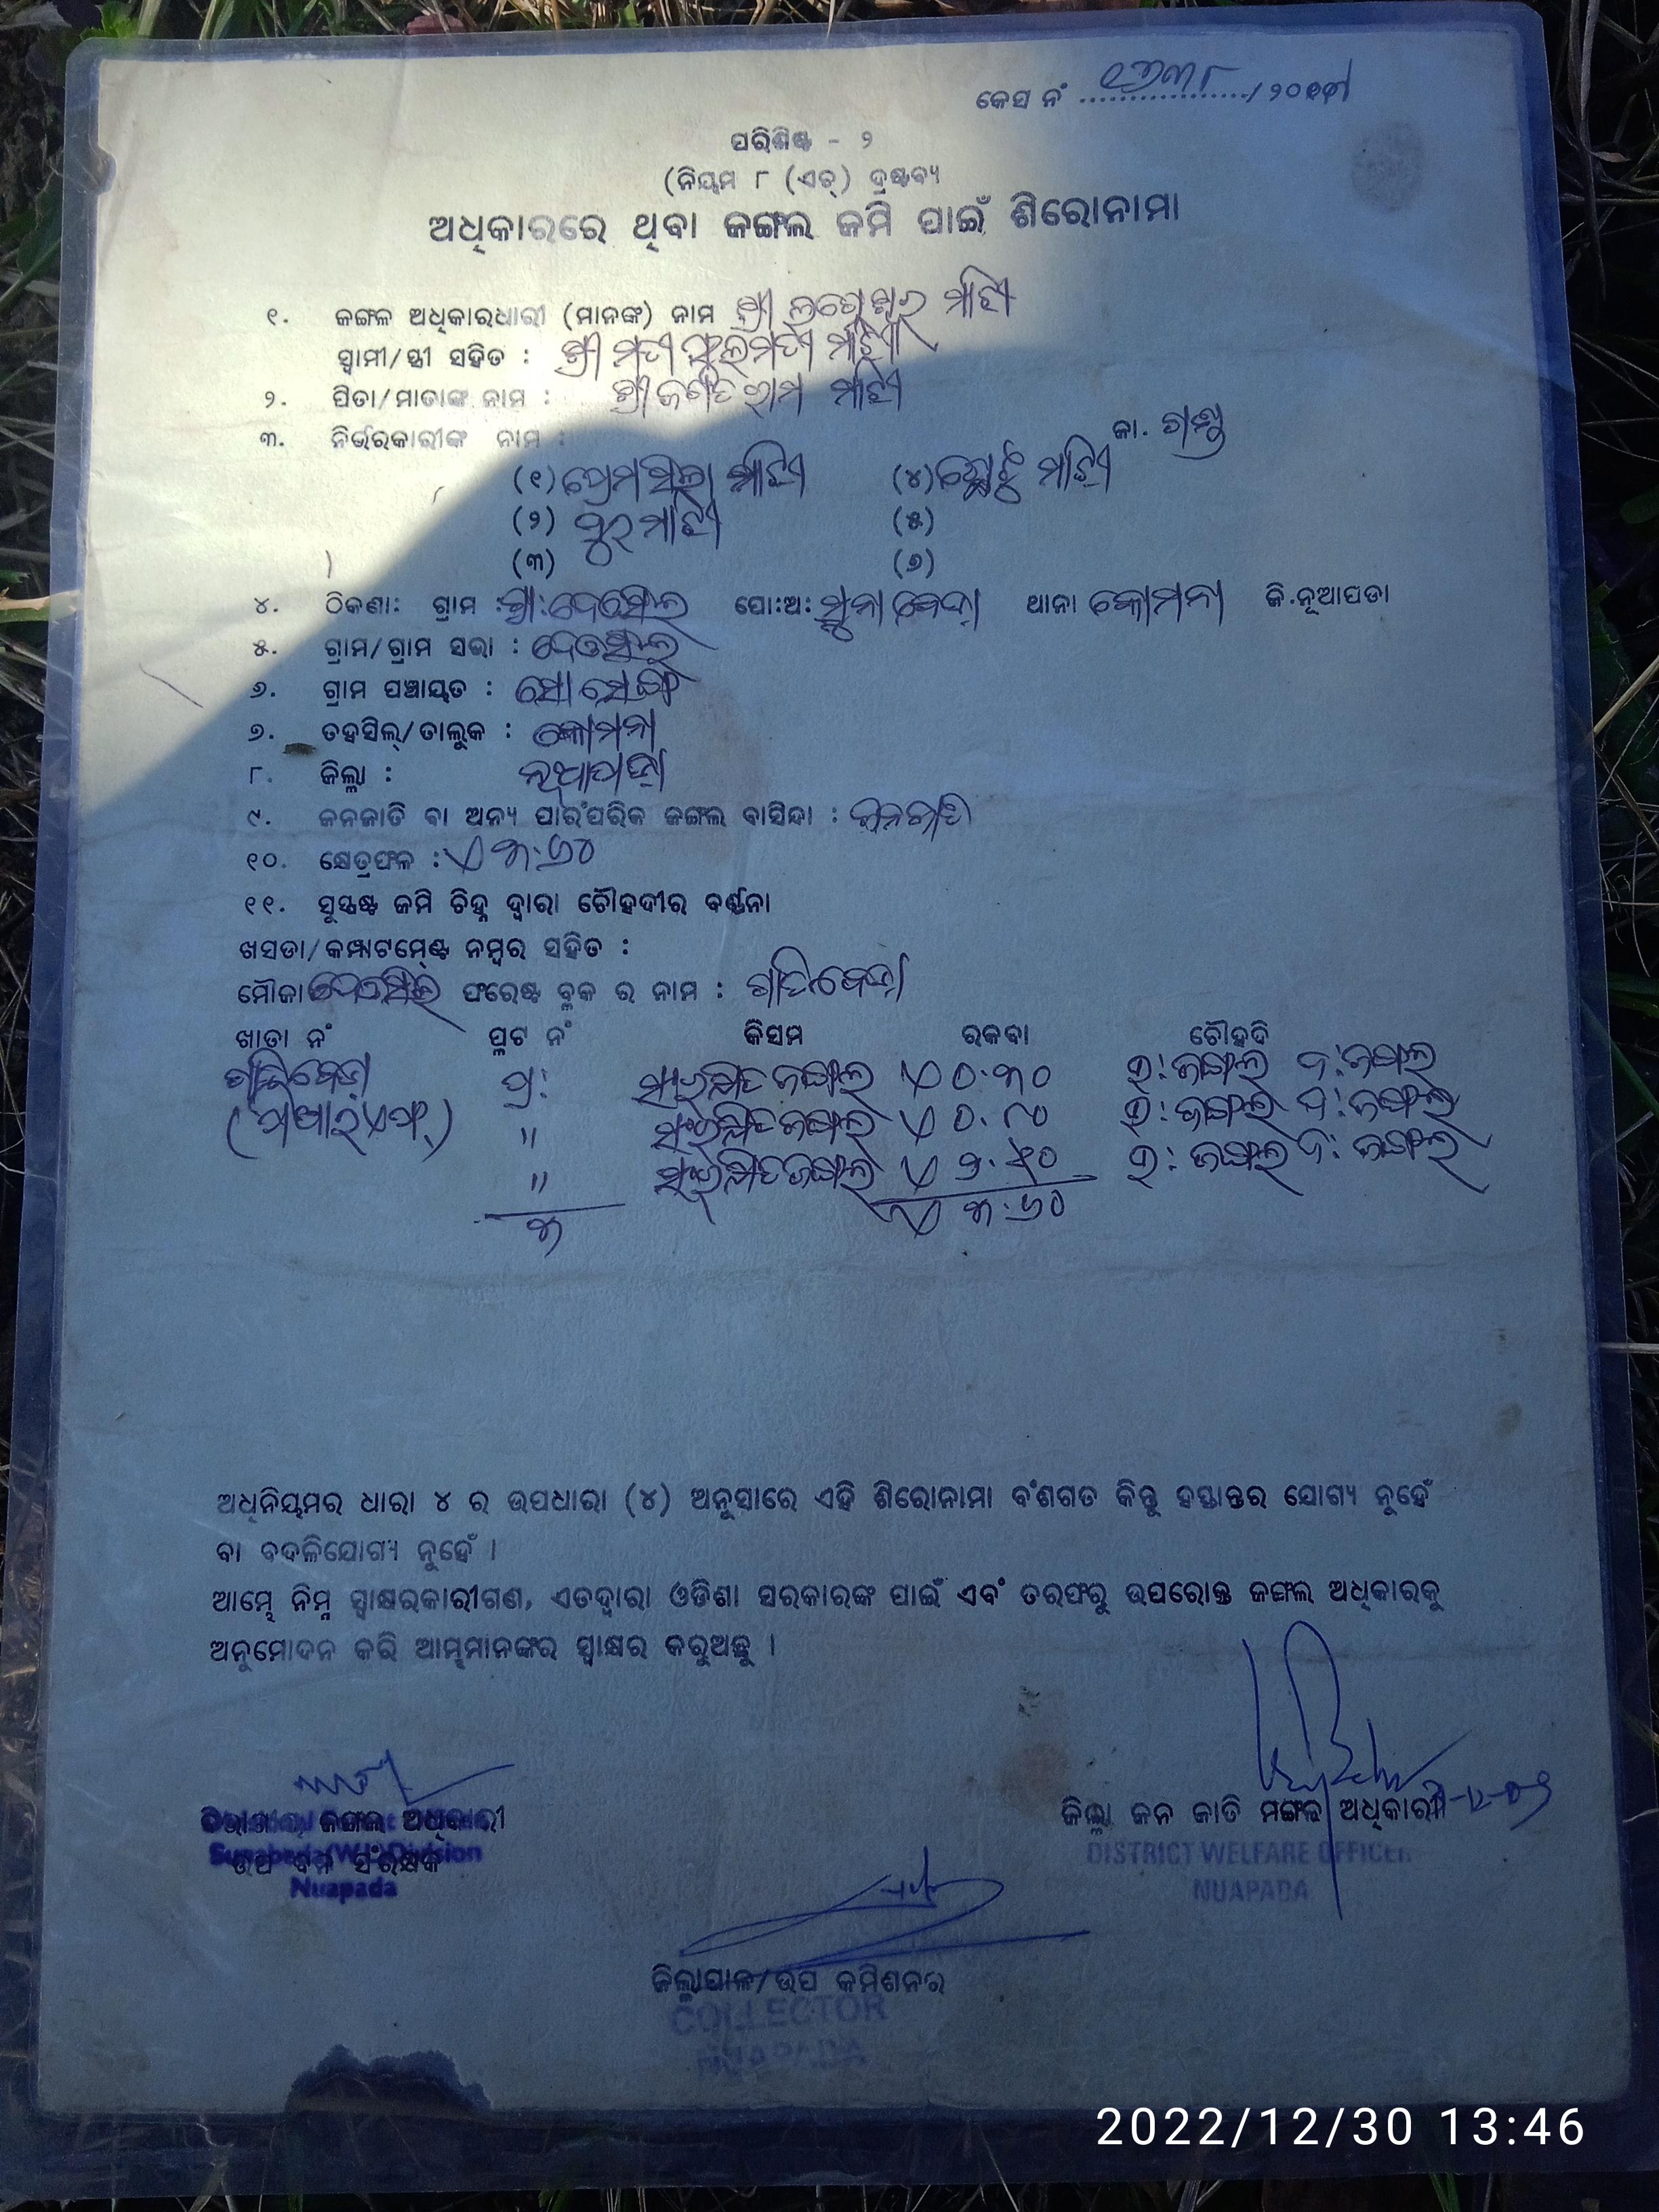 କେସ ନଂ ................/୨୦
ପରିଶିଷ୍ଟ - ୨
(ନିୟମ ୮ (ଏଚ୍) ଦ୍ରଷ୍ଟବ୍ୟ
ଅଧିକାରରେ ଥିବା ଜଙ୍ଗଲ ଜମି ପାଇଁ ଶିରୋନାମା
୧. ଜଙ୍ଗଲ ଅଧିକାରଧାରୀ (ମାନଙ୍କ) ନାମ ଶ୍ରୀ ମାଝୀ
ସ୍ୱାମୀ/ସ୍ତ୍ରୀ ସହିତ : ଶ୍ରୀମତୀ ଫୁଲମତୀ ମାଝୀ
୨. ପିତା/ମାତାଙ୍କ ନାମ : ଶ୍ରୀ ମାଝୀ
୩. ନିର୍ଭରକାରୀଙ୍କ ନାମ : ଜା.
(୧) ମାଝୀ (୪) ମାଝୀ
(୨) ମାଝୀ (୫)
(୩) (୬)
୪. ଠିକଣା: ଗ୍ରାମ : ପୋ:ଅ: ସୁନାବେଡା ଥାନା କୋମନା ଜି.ନୂଆପଡା
୫. ଗ୍ରାମ/ଗ୍ରାମ ସଭା :
୬. ଗ୍ରାମ ପଞ୍ଚାୟତ :
୭. ତହସିଲ୍/ତାଲୁକ : କୋମନା
୮. ଜିଲ୍ଲା : ନୂଆପଡା
୯. ଜନଜାତି ବା ଅନ୍ୟ ପାରଂପରିକ ଜଙ୍ଗଲ ବାସିନ୍ଦା : ଜନଜାତି
୧୦. କ୍ଷେତ୍ରଫଳ : ୩.୬୦
୧୧. ସୁସ୍ପଷ୍ଟ ଜମି ଚିହ୍ନ ଦ୍ୱାରା ଚୌହଦୀର ବର୍ଣ୍ଣନା
ଖସଡା/କମ୍ପାଟମେଣ୍ଟ ନମ୍ବର ସହିତ :
ମୌଜା ଫରେଷ୍ଟ ବ୍ଲକ ର ନାମ :
ଖାତା ନଂ ପ୍ଲଟ ନଂ କିସମ ରକବା ଚୌହଦି
ପ୍ର: ସଂରକ୍ଷିତ ଜଙ୍ଗଲ ୦.୩୦ ଉ: ଜଙ୍ଗଲ ଦ: ଜଙ୍ଗଲ
(ପିଆର୍ଏଫ୍) " ସଂରକ୍ଷିତ ଜଙ୍ଗଲ ୦.୮୦ ଉ: ଜଙ୍ଗଲ ଦ: ଜଙ୍ଗଲ
" ସଂରକ୍ଷିତ ଜଙ୍ଗଲ ଉ: ଜଙ୍ଗଲ ଦ: ଜଙ୍ଗଲ
୩ ୩.୬୦
ଅଧିନିୟମର ଧାରା ୪ ର ଉପଧାରା (୪) ଅନୁସାରେ ଏହି ଶିରୋନାମା ବଂଶଗତ କିନ୍ତୁ ହସ୍ତାନ୍ତର ଯୋଗ୍ୟ ନୁହେଁ
ବା ବଦଳିଯୋଗ୍ୟ ନୁହେଁ ।
ଆମ୍ଭେ ନିମ୍ନ ସ୍ୱାକ୍ଷରକାରୀଗଣ, ଏତଦ୍ୱାରା ଓଡିଶା ସରକାରଙ୍କ ପାଇଁ ଏବଂ ତରଫରୁ ଉପରୋକ୍ତ ଜଙ୍ଗଲ ଅଧିକାରକୁ
ଅନୁମୋଦନ କରି ଆମ୍ଭମାନଙ୍କର ସ୍ୱାକ୍ଷର କରୁଅଛୁ ।
ବିଭାଗୀୟ ଜଙ୍ଗଲ ଅଧିକାରୀ
ଉପ ବନ ସଂରକ୍ଷକ
Sunabeda (W.L) Division
Nuapada
ଜିଲ୍ଲା ଜନ ଜାତି ମଙ୍ଗଳ ଅଧିକାରୀ
DISTRICT WELFARE OFFICER
NUAPADA
ଜିଲ୍ଲାପାଳ/ଉପ କମିଶନର
COLLECTOR
NUAPADA
2022/12/30 13:46